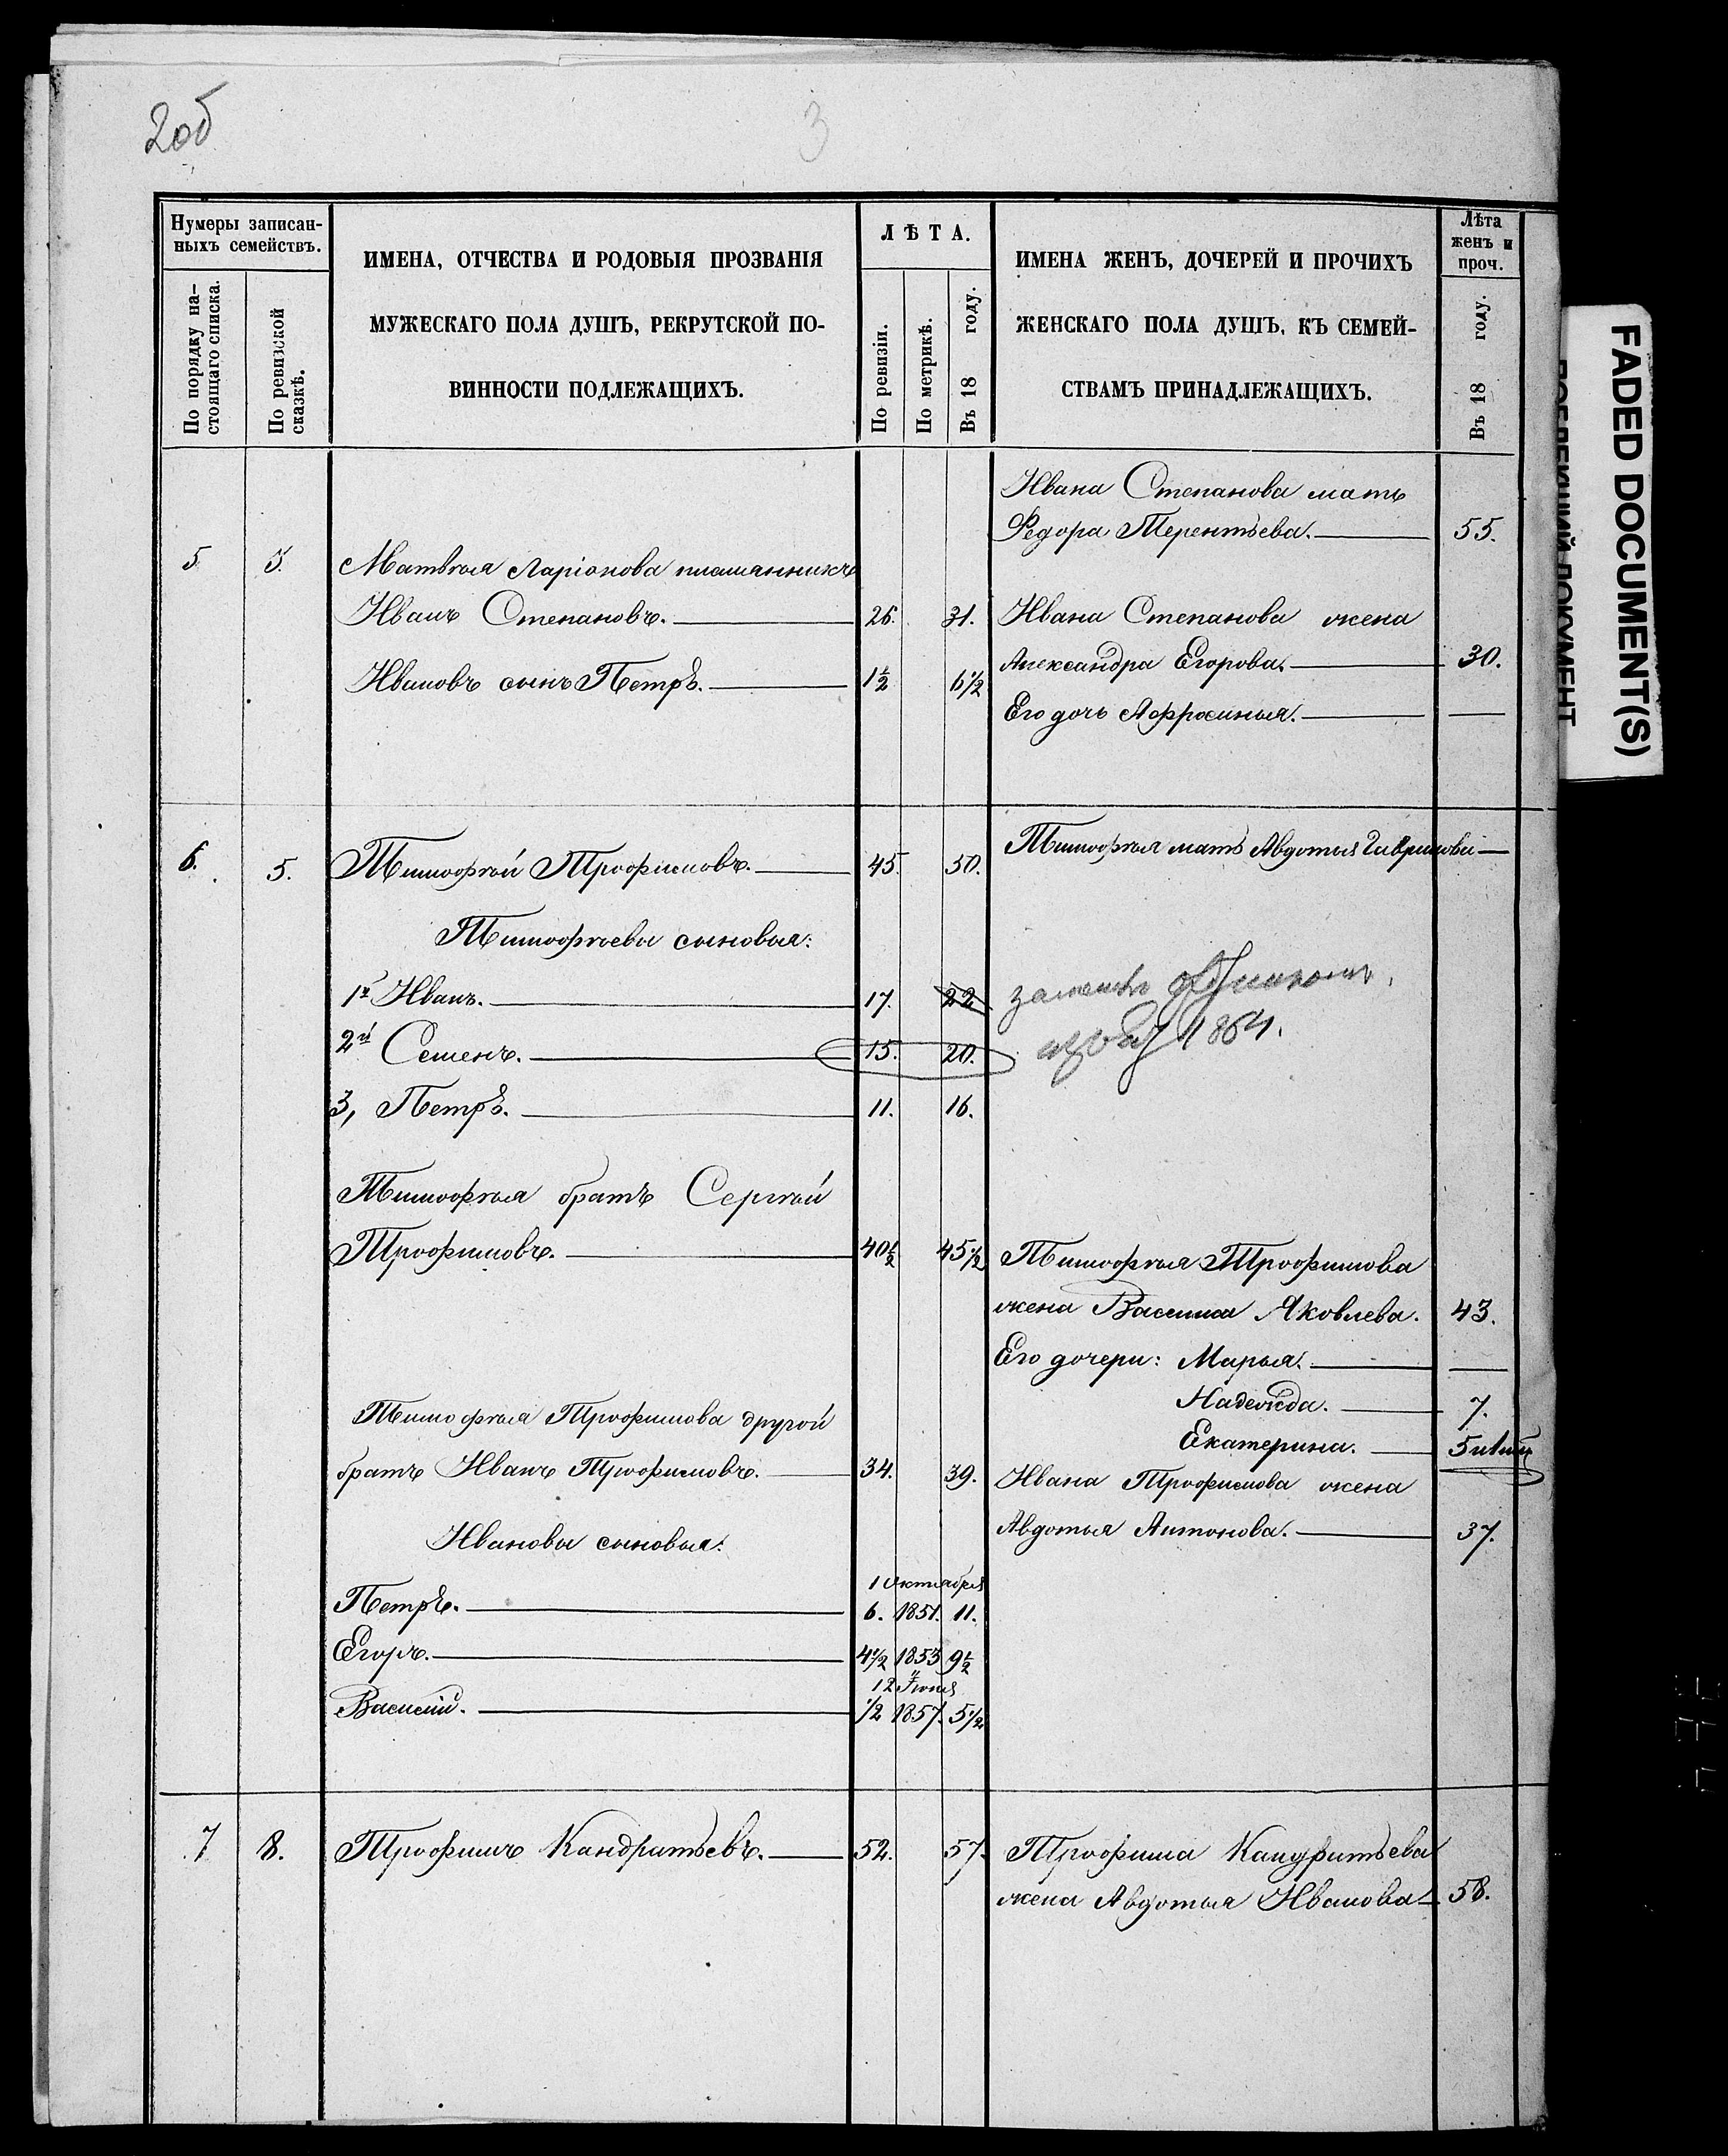 2об
3
Нумеры записан-
ныхъ семействъ.
По порядку на-
стоящаго списка.
По ревизской
сказкѣ.
ИМЕНА, ОТЧЕСТВА И РОДОВЫЯ ПРОЗВАНІЯ
МУЖЕСКАГО ПОЛА ДУШЪ, РЕКРУТСКОЙ ПО-
ВИННОСТИ ПОДЛЕЖАЩИХЪ.
ЛѢТА.
По ревизіи.
По метрикѣ.
Въ 18 году.
ИМЕНА ЖЕНЪ, ДОЧЕРЕЙ И ПРОЧИХЪ
ЖЕНСКАГО ПОЛА ДУШЪ, КЪ СЕМЕЙ-
СТВАМЪ ПРИНАДЛЕЖАЩИХЪ.
Лѣта
женъ и
проч.
Въ 18 году.
Ивана Степанова мать
Федора Терентьева. 55.
5 5. Матвѣя Ларіонова племянникъ
Иванъ Степановъ. 26. 31. Ивана Степанова жена
Александра Егорова. 30.
Ивановъ сынъ Петръ. 1½ 6½
Его дочь Афросинья. —
6. 5. Тимофѣй Трофимовъ. 45. 50. Тимофѣя мать Авдотья Гаврилова —
Тимофѣевы сыновья:
1й Иванъ. 17. 22
2й Семенъ. 15. 20. 1864.
3, Петръ. 11. 16.
Тимофѣя братъ Сергѣй
Трофимовъ. 40½ 45½ Тимофѣя Трофимова
жена Василиса Яковлева. 43.
Его дочери: Марья. —
Надежда. 7.
Екатерина. 5
Тимофѣя Трофимова другой
братъ Иванъ Трофимовъ. 34. 39. Ивана Трофимова жена
Авдотья Антонова. 37.
Ивановы сыновья:
1 Октября
Петръ. 6. 1851. 11.
Егоръ. 4½ 1853 9½
12 Іюня
Василій. ½ 1857. 5½
7 8. Трофимъ Кандратьевъ. 52. 57. Трофима Кандратьева
жена Авдотья Иванова 58.
FADED DOCUMENT(S)
ДОКУМЕНТ